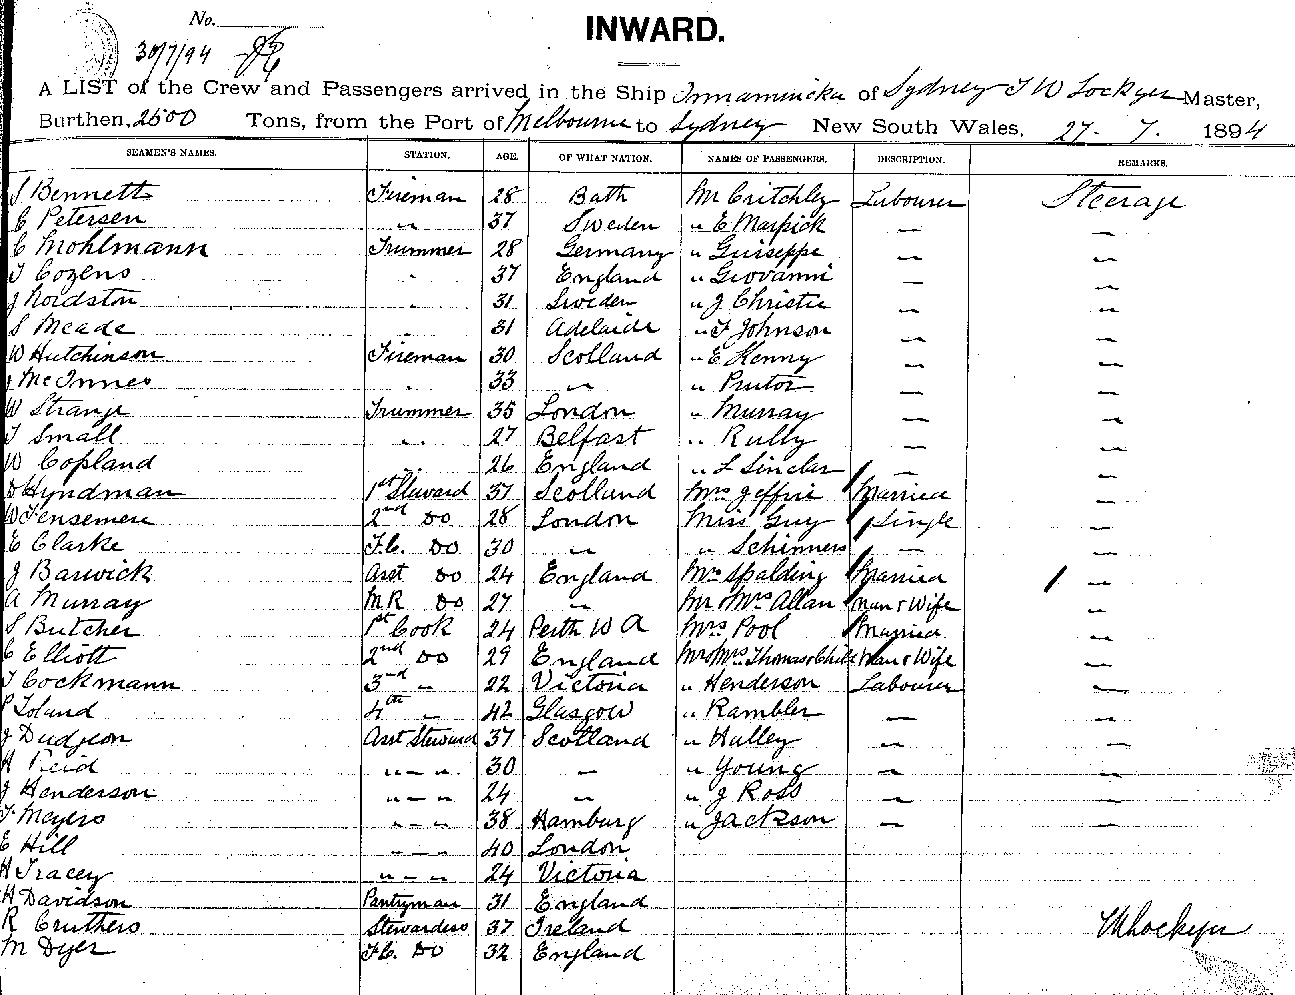 No.
30/7/94
INWARD.
A LIST of the Crew and Passengers arrived in the Ship Innamincka of Sydney T W Lockyer Master,
Burthen, 2500 Tons, from the Port of Melbourne to Sydney New South Wales, 27. 7. 1894
SEAMEN'S NAMES. STATION. AGE. OF WHAT NATION. NAMES OF PASSENGERS. DESCRIPTION. REMARKS.
S Bennett Fireman 28 Bath Mr Critchley Labourer Steerage
C Petersen " 37 Sweden " E Marpick " "
C Mohlmann Trummer 28 Germany " Guiseppe " "
T Cozens " 37 England " Giovanni " "
J Nordston " 31 Sweden " J Christie " "
S Meade " 31 Adelaide " F Johnson " "
W Hutchinson Fireman 30 Scotland " E Kenny " "
J McInnes " 33 " " Prutor " "
W Strange Trummer 35 London " Murray " "
T Small " 27 Belfast " Rully " "
W Copland " 26 England " L Sinclar " "
D Hyndman 1st Steward 37 Scotland Mrs Jeffrie Married "
W Jensemen 2nd Do 28 London Miss Guy Single "
E Clarke F.C. Do 30 " " Schinners " "
J Barwick Asst Do 24 England Mrs Spalding Married "
A Murray MR Do 27 " Mr & Mrs Allan Man & Wife "
S Butcher 1st Cook 24 Perth W A Mrs Pool Married "
C Elliott 2nd Do 29 England Mr & Mrs Thomas & Child Man & Wife "
T Cockmann 3rd " 22 Victoria " Henderson Labourer "
P Toland 4th " 42 Glasgow " Rambler " "
J Dudgeon Asst Steward 37 Scotland " Halley " "
H Reid " " " 30 " " Young " "
J Henderson " " " 24 " " J Ross " "
F Meyers " " " 38 Hamburg " Jackson " "
E Hill " " " 40 London
H Tracey " " " 24 Victoria
H Davidson Pantryman 31 England
R Cruthers Stewardess 37 Ireland
M Dyer F.C. Do 32 England
Lockyer